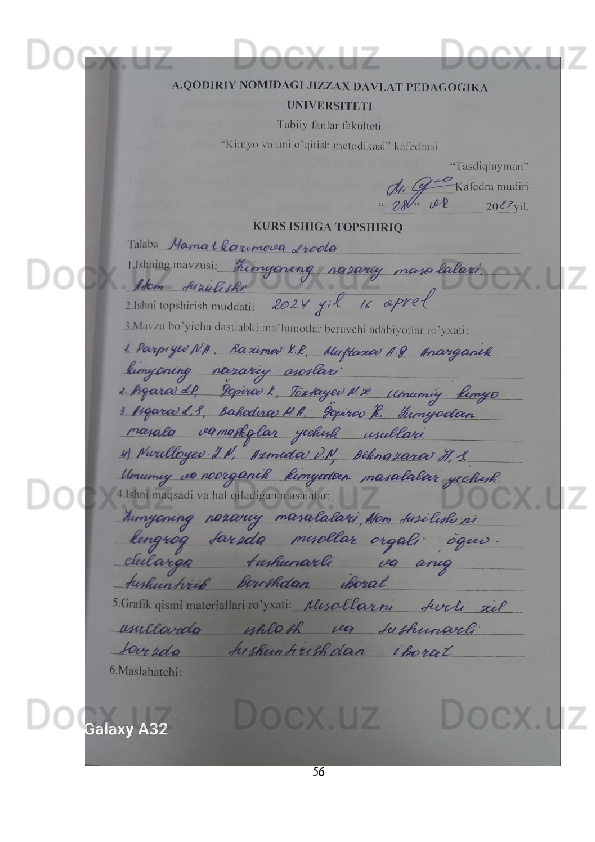 A.QODIRIY NOMIDAGI JIZZAX DAVLAT PEDAGOGIKA
UNIVERSITETI
Tabiiy fanlar fakulteti
“Kimyo va uni o’qitish metodikasi” kafedrasi
“Tasdiqlayman”
Kafedra mudiri
“ 28 ” 20 yil.
KURS ISHIGA TOPSHIRIQ
Talaba Mamatkarimova Iroda
1.Ishning mavzusi: Kimyoning nazariy masalalari.
Atom tuzilishi
2.Ishni topshirish muddati: 2024 yil 16 aprel
3.Mavzu bo’yicha dastlabki ma’lumotlar beruvchi adabiyotlar ro’yxati:
1. Parpiyev N.A., Raximov X.R., Muftaxov A.G. Anorganik
kimyoning nazariy asoslari
2. Asqarov I.R., Ğopirov K, Toxtayev N.X Umumiy kimyo
3. Asqarov I.S, Bahodirov M.A, Ğopirov K. Kimyodan
masala va mashqlar yechish usullari
4) Nurulloyev X.N, Axmedov O.N, Beknazarov H.S.
Umumiy va noorganik kimyodan masalalar yechish.
4.Ishni maqsadi va hal qiladigan masalalar:
Kimyoning nazariy masalalari, Atom tuzilishi ni
kengroq tarzda misollar orqali öquv-
chilarga tushunarli va aniq
tushuntirib berishdan iborat
5.Grafik qismi materiallari ro’yxati: Misollarni turli xil
usullarda ishlash va tushunarli
tarzda tushuntirishdan iborat
6.Maslahatchi:
Galaxy A32
56